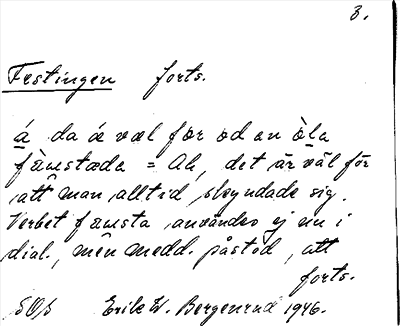 3.
Festingen forts.
á da æ væl før od an òla
fæmstæda = Ah, det är väl för
att man alltid skyndade sig.
Verbet fæmsta användes ej nu i
dial., men medd. påstod, att
forts.
SOS Erik W. Bergenrud 1946.